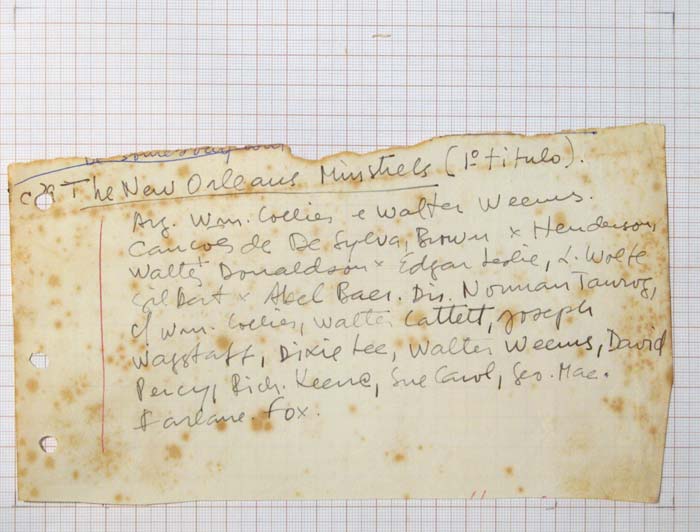 The New Orleans Minstrels (1º titulo).
Arg. Wm. Collier e Walter Weems.
Canções de De Sylva, Brown x Henderson,
Walter Donaldson x Edgar Leslie, L. Wolfe
Gilbert x Abel Baer. Dir. Norman Taurog,
c/ Wm. Collier, Walter Catlett, Joseph
Wagstaff, Dixie Lee, Walter Weems, David
Percy, Rich. Keene, Sue Carol, Geo. Mac.
Farlane. Fox.